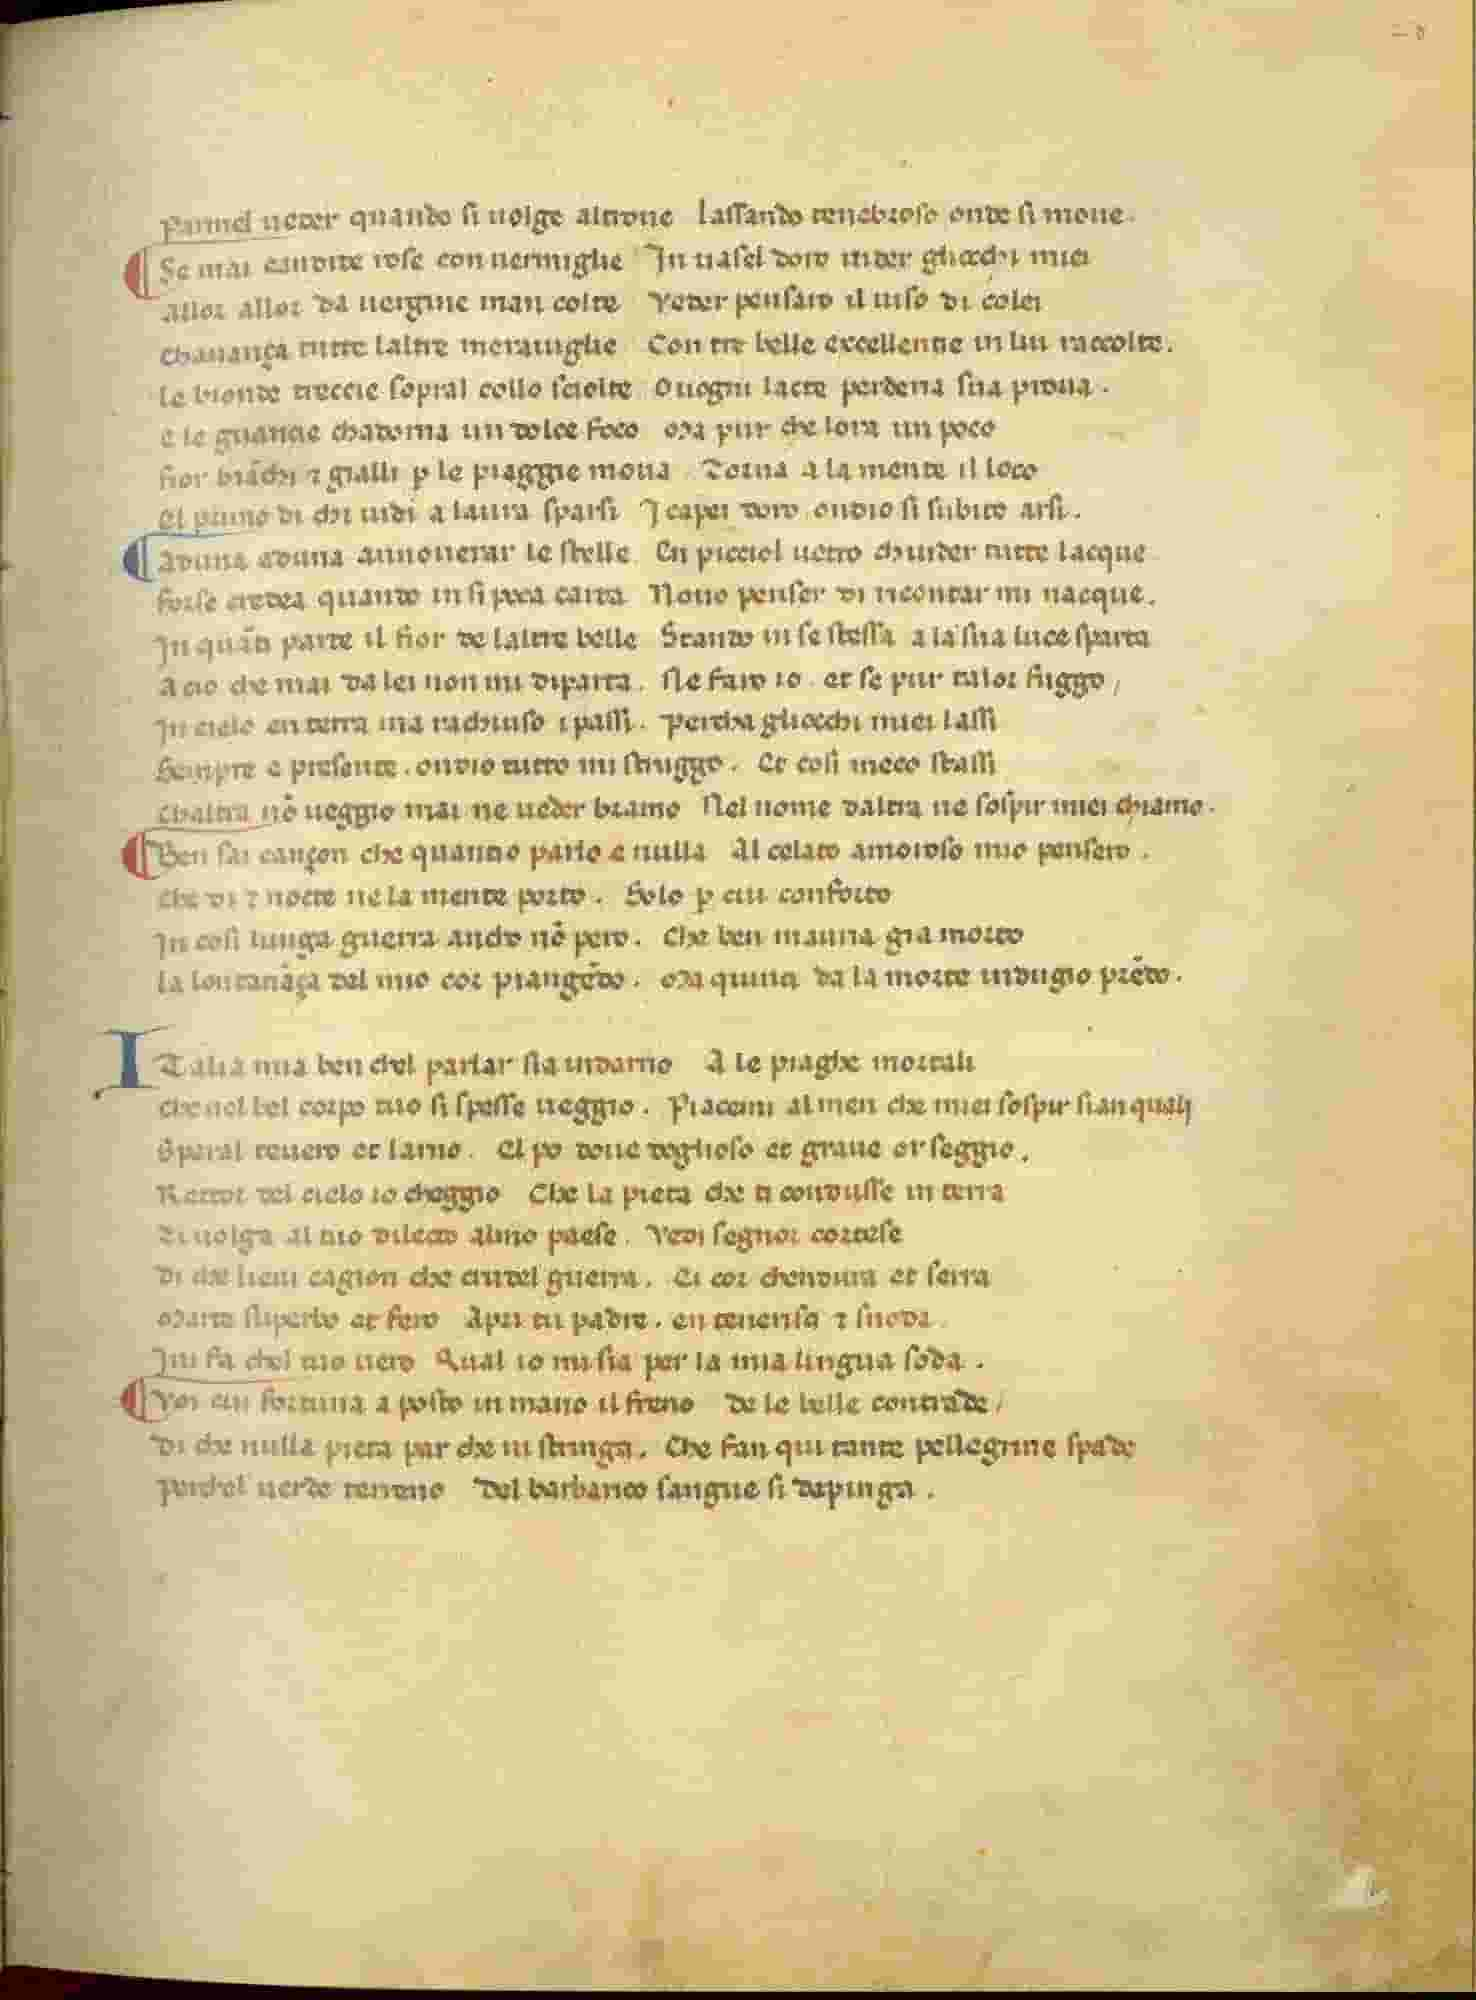 Parmel ueder quando si uolge altroue lassando tenebroso onde si moue.
Se mai candide rose con uermiglie In uasel doro uider gliocchi miei
allor allor da uergine man colte Veder pensaro il uiso di colei
Chauança tutte laltre merauiglie Con tre belle excellentie in lui raccolte.
le bionde treccie sopral collo sciolte Ouogni lacte perderia sua proua.
e le guancie chadorna un dolce foco Ma pur che lora un poco
fior biāchi ⁊ gialli ꝑ le piaggie moua. Torna a la mente il loco
El primo di chi uidi a laura sparsi I capei doro ondio si subito arsi.
Aduna aduna annouerar le stelle En picciol uetro chiuder tutte lacque
forse credea quando in si poca carta Nouo penser di ricontar mi nacque.
In quāti parte il fior de laltre belle Stando in se stessa a la sua luce sparta
A cio che mai da lei non mi diparta. Ne faro io. et se pur talor fuggo /
In cielo en terra ma rachiuso i passi. Percha gliocchi miei lassi
Sempre e presente. ondio tutto mi struggo. Et cosi meco stassi
Chaltra nō ueggio mai ne ueder bramo Nel nome daltra ne sospir miei chiamo.
Ben sai cançon che quantio parlo e nulla Al celato amoroso mio pensero.
che di ⁊ nocte ne la mente porto. Solo ꝑ cui conforto
In cosi lunga guerra ancho nō pero. Che ben mauria gia morto
la lontanāça del mio cor piangēdo. Ma quinci da la morte indugio prēdo.
ITalia mia ben chel parlar sia indarno A le piaghe mortali
che nel bel corpo tuo si spesse ueggio. Piacemi almen che miei sospir sian quali
Speral teuero et larno. El po doue doglioso et graue or seggio.
Rettor del cielo io cheggio Che la pieta che ti condusse in terra
Ti uolga al tuo dilecto almo paese. Vedi segnor cortese
Di che lieui cagion che crudel guerra. Ei cor chendura et serra
Marte superbo et fero Apri tu padre. en tenerisci ⁊ snoda
Iui fa chel tuo uero Qual io mi sia per la mia lingua soda.
Voi cui fortuna a posto in mano il freno de le belle contrade /
Di che nulla pieta par che ui stringa. Che fan qui tante pellegrine spade
Perchel uerde terreno Del barbarico sangue si depinga.